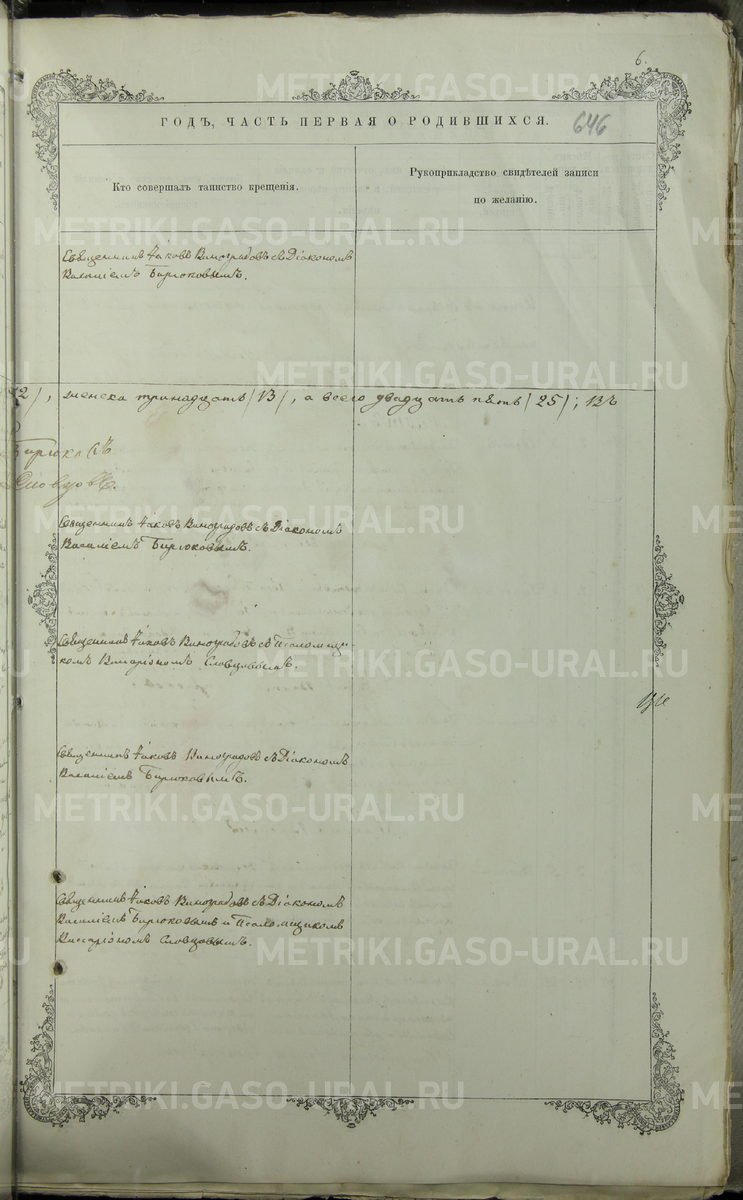 6.
646
ГОДЪ, ЧАСТЬ ПЕРВАЯ О РОДИВШИХСЯ.
Кто совершалъ таинство крещенія.
Рукоприкладство свидѣтелей записи
по желанію.
Священникъ Іаковъ Виноградовъ съ Діакономъ
Василіемъ Бирюковымъ.
2), женска тринадцать (13), а всего двадцать пять (25);
Бирюковъ
Словцовъ.
Священникъ Іаковъ Виноградовъ съ Діакономъ
Василіемъ Бирюковымъ.
Священникъ Іаковъ Виноградовъ съ Псаломщи-
комъ Виссаріономъ Словцовымъ.
Священникъ Іаковъ Виноградовъ съ Діакономъ
Василіемъ Бирюковымъ.
Священникъ Іаковъ Виноградовъ съ Діакономъ
Василіемъ Бирюковымъ и Псаломщикомъ
Виссаріономъ Словцовымъ.
METRIKI.GASO-URAL.RU